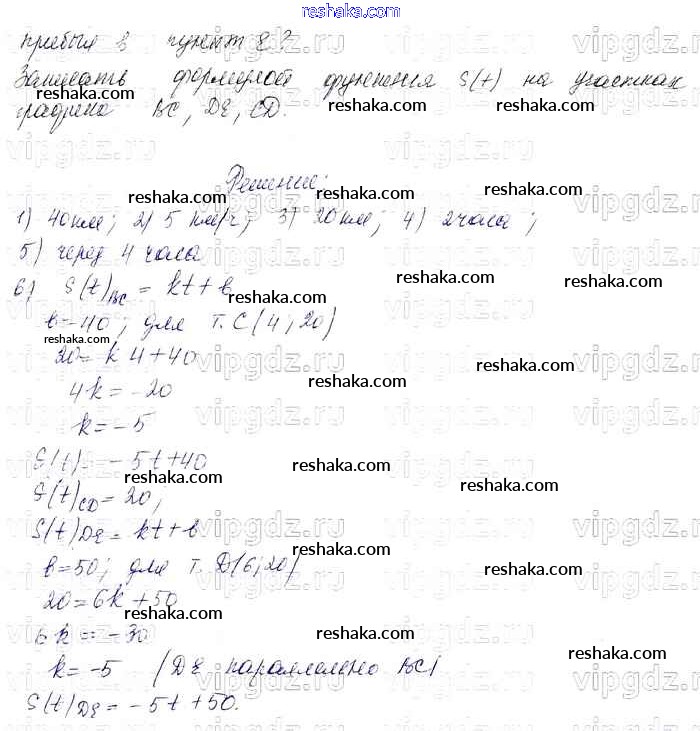 reshaka.com
прибыл в пункт E?
Записать формулой функции S(t) на участках
графика BC, DE, CD.
Решение:
1) 40 км; 2) 5 км/ч; 3) 20 км; 4) 2 часа;
5) через 4 часа
6) S(t)BC = kt + b
b = 40; для т. C (4; 20)
20 = k4 + 40
4k = -20
k = -5
S(t) = -5t + 40
S(t)CD = 20,
S(t)DE = kt + b
b = 50; для т. D(6; 20)
20 = 6k + 50
6k = -30
k = -5 (DE параллельно BC)
S(t)DE = -5t + 50.